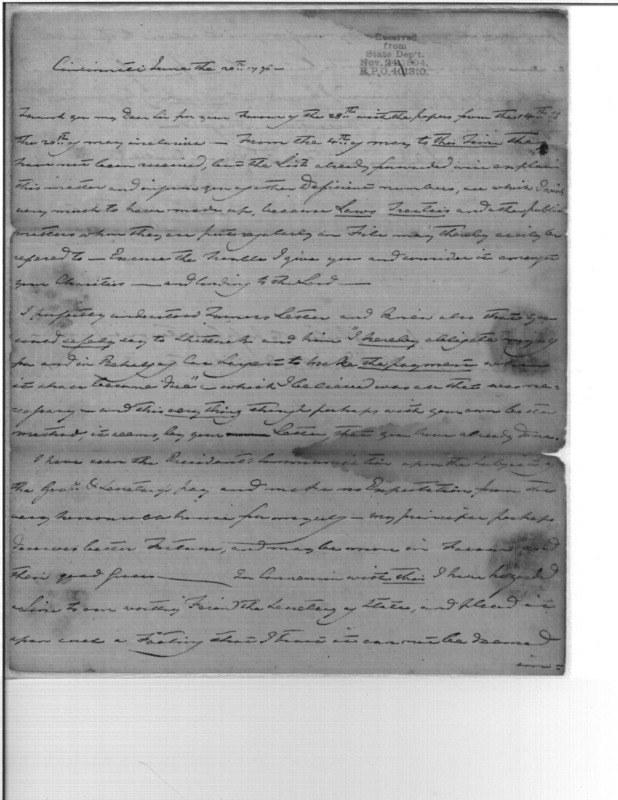 Received
from
State Dep't.
Nov. 24 1904.
R.P.O. 401310.
Cincinnati June the 20th 1796 —
Thank you my Dear Sir for your Favour of the 28th with the papers from the 14th to
the 20th of may inclusive — From the 4th of may to this Time they
have not been received, but the List already forwarded will explain
this matter and inform you of other Deficient numbers, all which I wish
very much to have made up, because Laws Treaties and other public
matters when they are put regularly on File may thereby easily be
refered to — Excuse the Trouble I give you and consider it amongst
your Charities — and lending to the Lord —
I perfectly understood Former Letter and knew also that you
could safely say to and him "I hereby obligate myself
for and in Behalf of to make the payment when
it shall become Due" — which I believed was all that was ne-
cessary — and this everything though perhaps with your own better
method, it seems, by your Letter, that you have already done.
I have seen the President's Communication upon the subject of
the Govr. & Secretary's pay and make no Expectations from the
very honourable house for myself — my principal perhaps
deserves better Fortune, and may be more in Favour, and
their good Graces — In Connexion with this I have hazarded
a Line to our worthy Friend the Secretary of State, and placed it
upon such a Footing that I trust it can not be deemed
im-